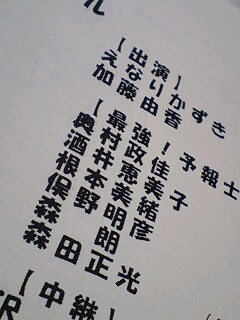 ル
【出　演】
えなりかずき
加藤由香
【最強！予報士
奥村政佳
酒井恵美子
根本美緒
俣野明彦
森　朗
森田正光
【中継】
沢